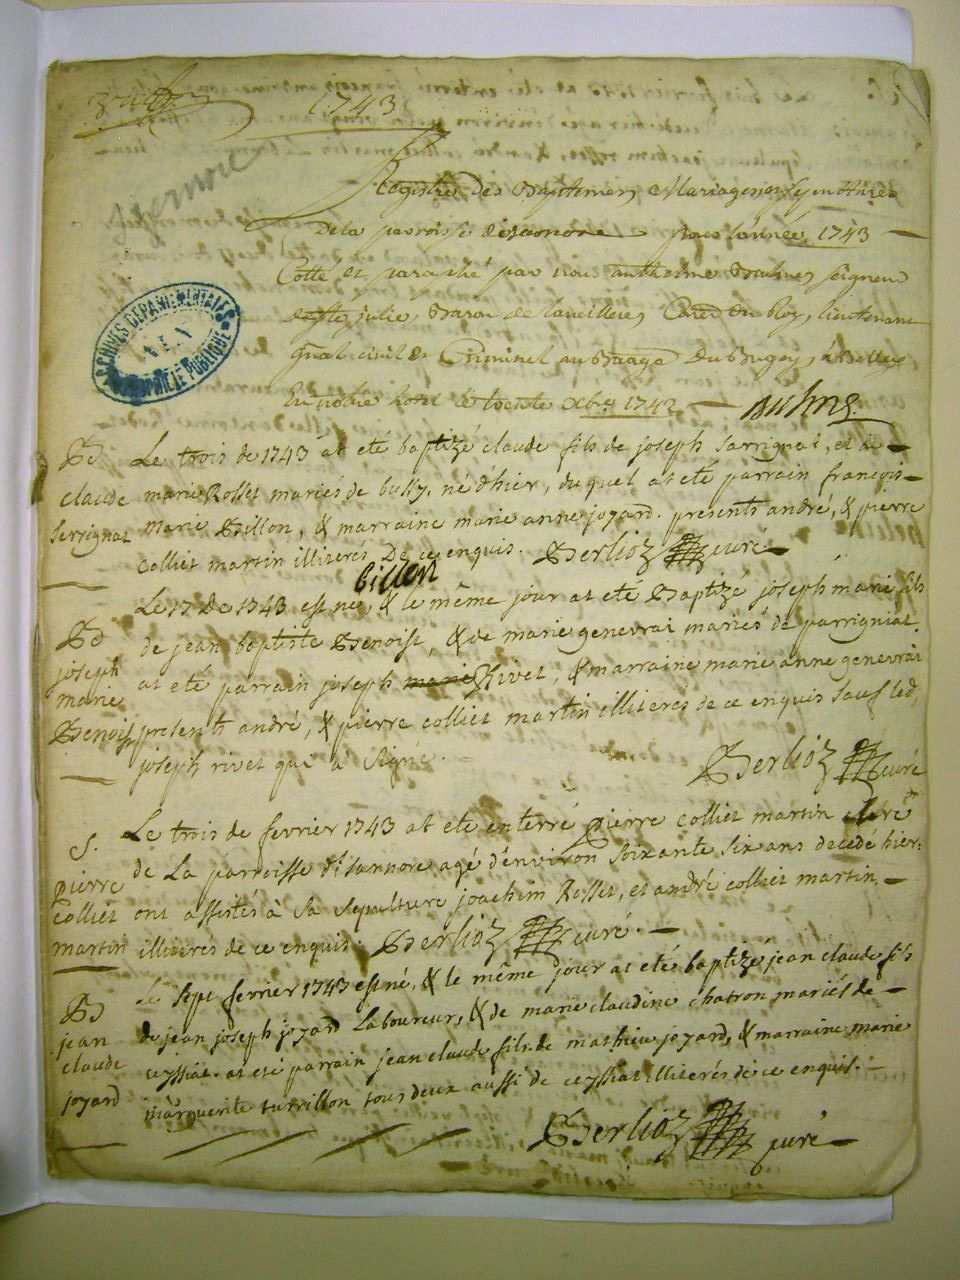 1743
Registres des Baptemes, Mariages et Sepultures
De la parroisse d'izanore pour l'année 1743
Cotté et paraphé par nous anthelme seigneur
de ste julie, Baron de Conser du Roy, lieutenant
gnal civil et Criminel au Baage Du Bugey, à Belley
En notre hotel le trente Xbre 1742
ARCHIVES DEPARTEMENTALES
AIN
PROPRIETE PUBLIQUE
Bd
claude
Serrignat
Le trois de 1743 at eté baptizé claude fils de joseph sarrignat, et de
marie Rosset mariés de bussy, né d'hier, duquel at eté parrain françois
marie Billon, & marraine marie anne joyard. presents andré, & pierre
colliet martin illiterés De ce enquis. Berlioz curé
billon
Bd
joseph
marie
Benoist
Le 17 de 1743 est né, & le même jour at eté Baptizé joseph marie fils
de jean baptiste Benoist, & de marie genevrai mariés de parrigniat.
at eté parrain joseph marie Rivet, & marraine marie anne genevrai
presents andré, & pierre colliet martin illiteres de ce enquis sauf led,
joseph rivet qui a signé.
Berlioz curé
S.
pierre
colliet
martin
Le trois de fevrier 1743 at eté enterré pierre colliet martin clerc
de La parroisse d'isannore agé d'environ soixante six ans decedé hier.
ont assistés à sa sepulture joachim Rosset, et andré colliet martin,
illiterés de ce enquis. Berlioz curé.
Bd
jean
claude
joyard
Le sept fevrier 1743 est né, & le même jour at eté baptizé jean claude fils
de jean joseph joyard Laboureur, & de marie claudine chatron mariés de
ceyssiat. at eté parrain jean claude fils de mathieu joyard, & marraine marie
marguerite turrillon tous deux aussi de ceyssiat illiterés de ce enquis.
Berlioz curé